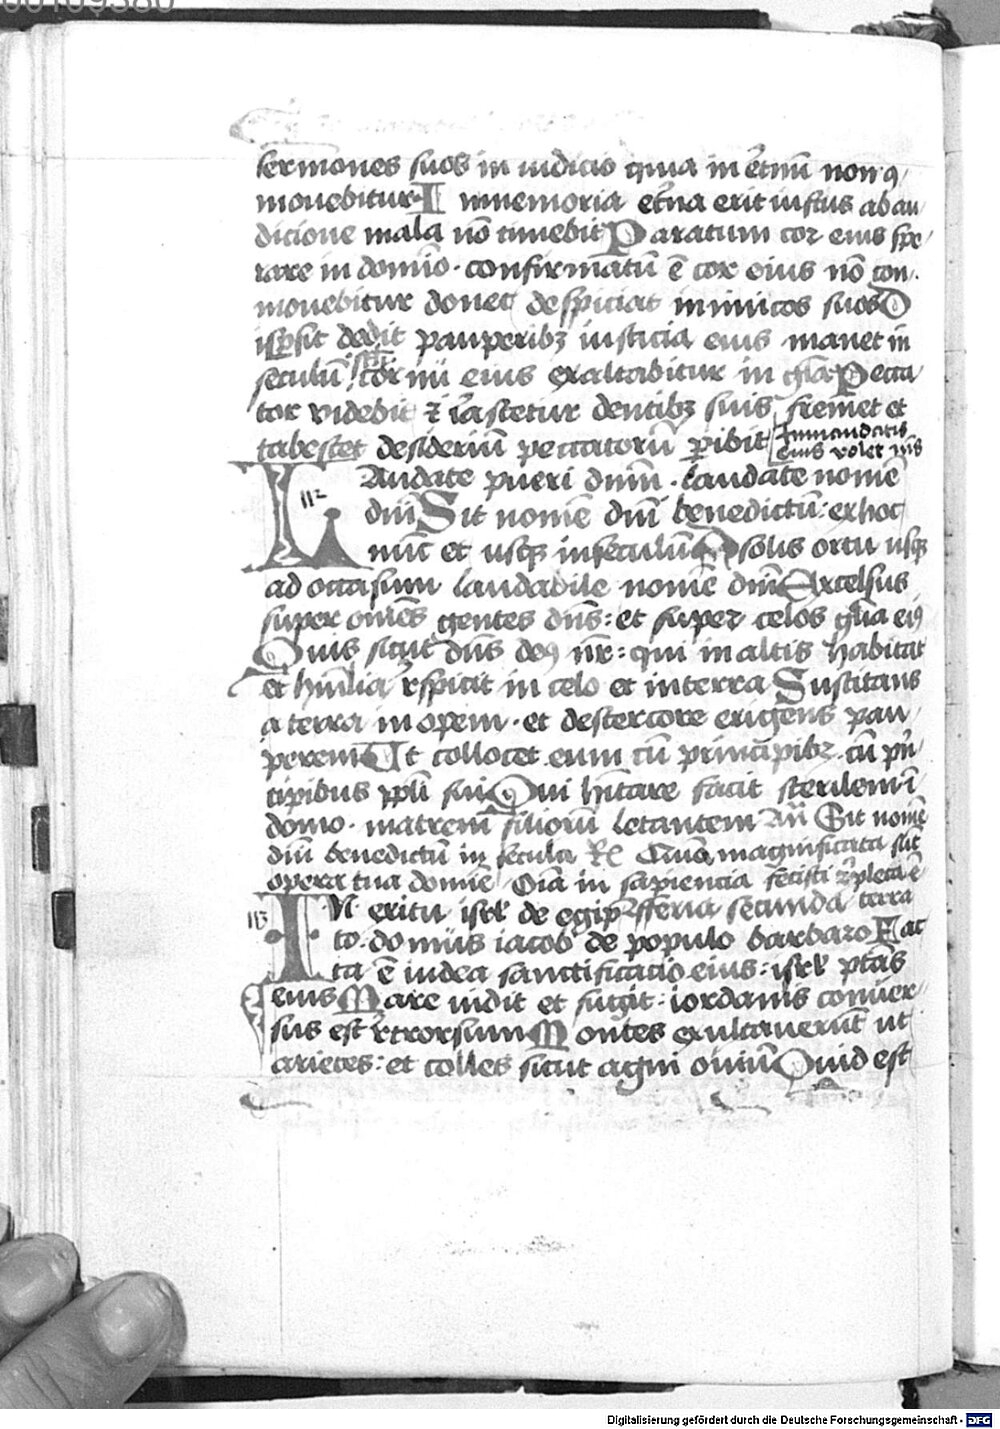 sermones suos in iudicio quia in et̄nū non ꝯ
mouebitur I nmemoria et̄na erit iustus ab au
dicione mala nō timebit P aratum cor eius spe
rare in domīo · confirmatū ē cor eius nō con
mouebitur donec despiciat inimicos suos D
isp̄sit dedit pauperibꝫ iusticia eius manet in
seculū s̄cli cornu eius exaltabitur in gl̄a P ecca
tor videbit ⁊ irascetur dentibꝫ suis fremet et
tabescet desideriū peccatorū ꝑibit In mandatis
eius volet nīs
112 L Audate pueri dnm̄ · laudate nomē
dnī S it nomē dnī benedictū : ex hoc
nūc et usqꝫ in seculū A solis ortu usqꝫ
ad occasum laudabile nomē dnī Excelsus
super omēs gentes dn̄s : et super celos gl̄ia eiꝰ
Quis sicut dn̄s deꝰ nr̄ : qui in altis habitat
et humilia r̄spicit in celo et in terra Suscitans
a terra inopem · et de stercore erigens pau
perem Ut collocet eum cū principibꝫ · cū prin
cipibus ppl̄i sui Qui hītare facit sterilem ī
domo · matrem filiorū letantem Añ Sit nomē
dnī benedictū in secula R̄ Quā magnificata sūt
opera tua domīe Oīa in sapiencia fecisti r̄pleta ē
terra
113 IN exitu isrl̄ de egip Fferia secunda
to · domus iacob de populo barbaro Fac
ta ē iudea sanctificacio eius : isrl̄ ptās
eius Mare uidit et fugit : iordanis conuer
sus est r̄trorsum Montes exultauerūt ut
arietes : et colles sicut agni ouiū Quid est
Digitalisierung gefördert durch die Deutsche Forschungsgemeinschaft - DFG